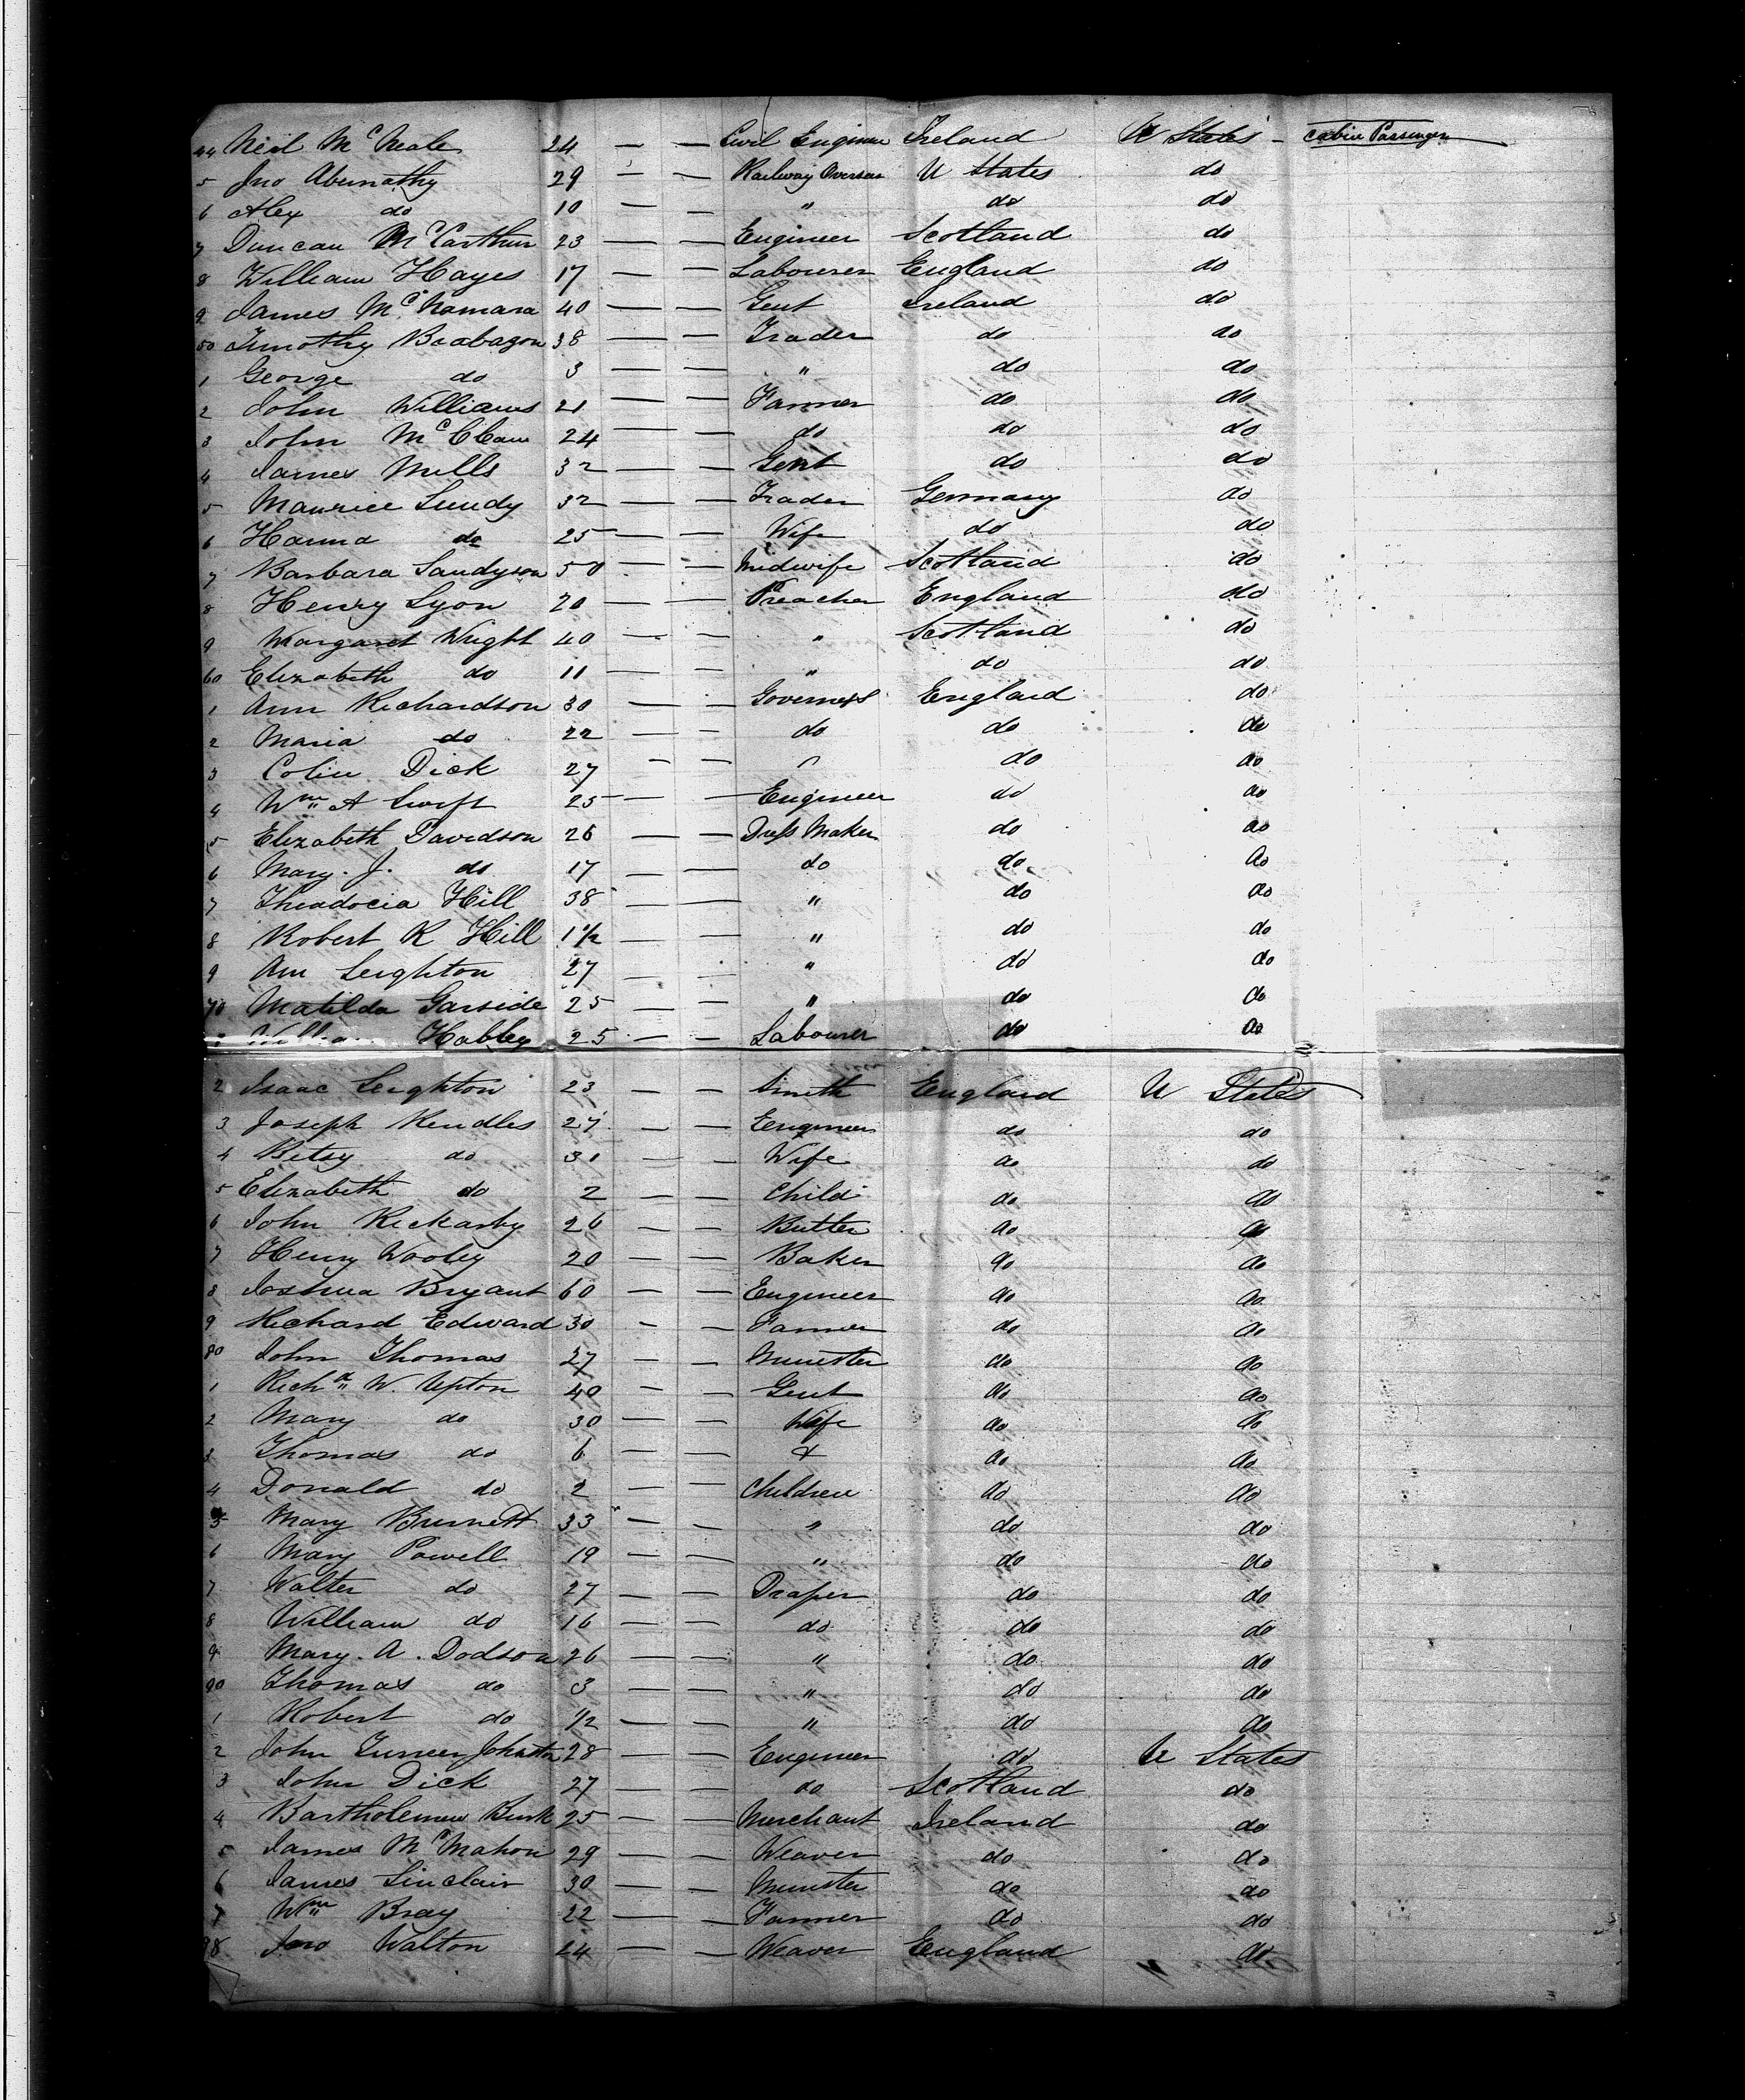 44 Neil McNeale 24 — — Civil Engineer Ireland U States - Cabin Passenger
5 Jno Abernathy 29 — — Railway Overseer U States do
6 Alex do 10 — — " do do
7 Duncan McCarthur 23 — — Engineer Scotland do
8 William Hayes 17 — — Labourer England do
9 James McNamara 40 — — Gent Ireland do
50 Timothy Brabagon 38 — — Trader do do
1 George do 3 — — " do do
2 John Williams 21 — — Farmer do do
3 John 24 — — do do do
4 James Mills 32 — — Gent do do
5 Maurice Lundy 32 — — Trader Germany do
6 Hanna do 25 — — Wife do do
7 Barbara Sandyson 50 — — Midwife Scotland do
8 Henry Lyon 20 — — Preacher England do
9 Margaret Wright 40 — — " Scotland do
60 Elizabeth do 11 — — " do do
1 Ann Richardson 30 — — Governess England do
2 Maria do 22 — — do do do
3 Colin Dick 27 — — " do do
4 Wm A Swift 25 — — Engineer do do
5 Elizabeth Davidson 26 — — Dress Maker do do
6 Mary. J. do 17 — — do do do
7 Theadocia Hill 38 — — " do do
8 Robert R Hill 1 1/2 — — " do do
9 Ann Leighton 27 — — " do do
70 Matilda Garside 25 — — " do do
Hobley 25 — — Labourer do do
2 Isaac Leighton 23 — — Smith England U States
3 Joseph Kendles 27 — — Engineer do do
4 Betsy do 31 — — Wife do do
5 Elizabeth do 2 — — Child do do
6 John Rickarby 26 — — Butler do do
7 Henry Wooley 20 — — Baker do do
8 Joshua Bryant 60 — — Engineer do do
9 Richard Edward 30 — — Farmer do do
80 John Thomas 27 — — Minister do do
1 Richd W. Upton 40 — — Gent do do
2 Mary do 30 — — Wife do do
3 Thomas do 6 — — & do do
4 Donald do 2 — — Children do do
5 Mary Burnett 33 — — " do do
6 Mary Powell 19 — — " do do
7 Walter do 27 — — Draper do do
8 William do 16 — — do do do
9 Mary. A. Dodson 26 — — " do do
90 Thomas do 3 — — " do do
1 Robert do 1/2 — — " do do
2 John Turner Johnston 28 — — Engineer do U States
3 John Dick 27 — — do Scotland do
4 Bartholemew Burk 25 — — Merchant Ireland do
5 James McMahon 29 — — Weaver do do
6 James Sinclair 30 — — Minister do do
7 Wm Bray 22 — — Farmer do do
98 Jno Walton 24 — — Weaver England do